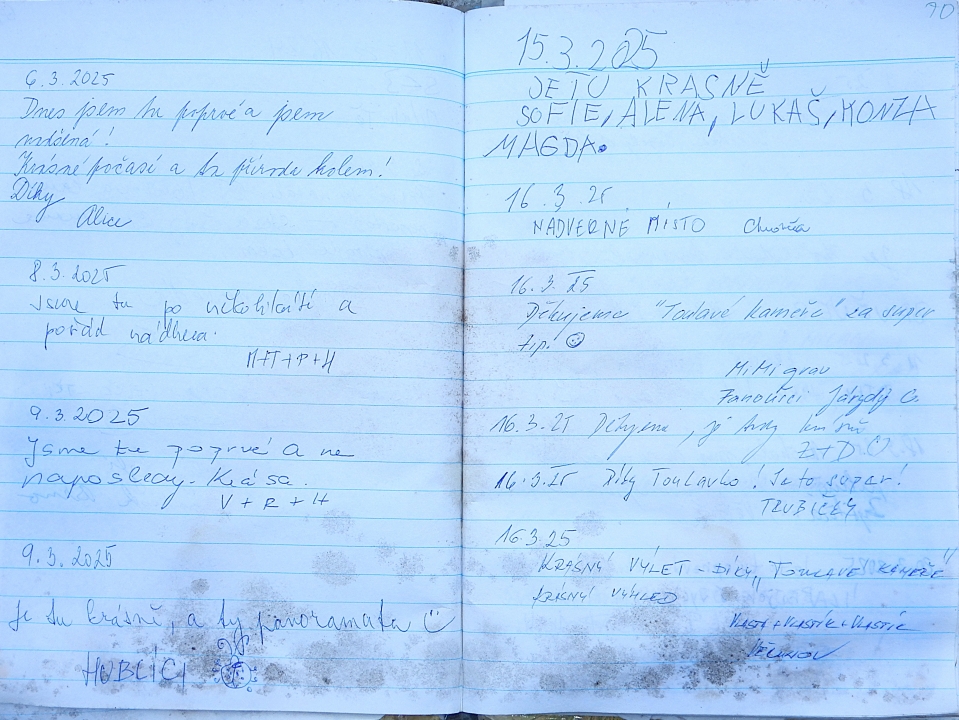 6.3.2025
Dnes jsem tu poprvé a jsem
vděčná!
Krásné počasí a ta příroda kolem!
Díky
Alice
8.3.2025
Jsme tu po několikáté a
pořád nádhera.
M+T+P+H
9.3.2025
Jsme tu poprvé a ne
naposledy. Krása.
V+R+H
9.3.2025
Je tu krásně, a ty panoramata
HUBLÍCI
90
15.3.2025
JETU KRASNĚ
SOFIE, ALENA, LUKAŠ, HONZA
MAGDA.
16.3.25
NÁDVERNÉ MÍSTO
16.3.25
Děkujeme "Toulavé kameře" za super
tip!
MiMi grau
Fanoušci
16.3.25 Děkujeme, je tady krásně
Z+D.
16.3.25 Díky Toulavko! Je to super!
TRUBIČKY
16.3.25
KRÁSNÝ VÝLET - DÍKY „TOULAVÉ KAMEŘE"
KRÁSNÝ VÝHLED
VLASTA+VLASTÍK+VLASTÍK